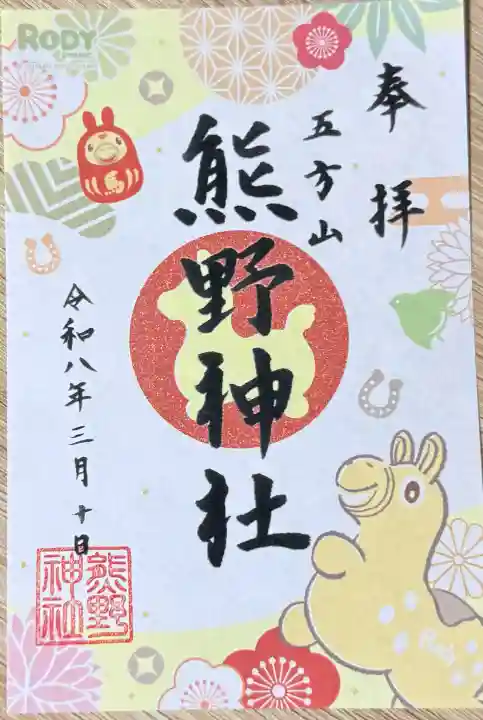 RODY
奉拝
五方山
熊野神社
令和八年三月十日
熊野
神社
馬
Rody